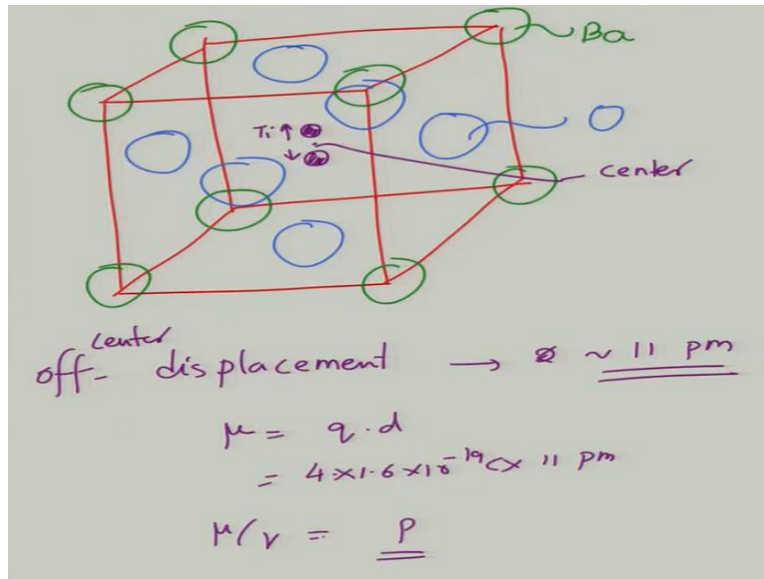 Ba
Ti ↑
↓
O
center
off-center displacement → ~ 11 pm
μ = q.d
= 4×1.6×10⁻¹⁹C× 11 pm
μ/V = P